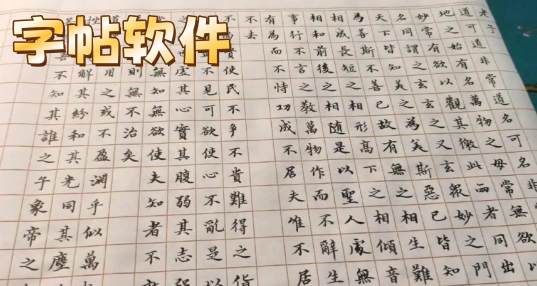 字帖软件
老子
道可道非常道名可名非常
地之始有名萬物之母
妙常有欲以觀其徼此
名同謂之玄玄之又玄眾妙之門
天下皆知美之為美斯惡已皆知
為善斯不善已故有無相生難
相成長短相形高下相傾音
相和前後相隨是以聖人處無
事行不言之教萬物作而不辭生
有為而不恃功成不居夫唯不居
不去
使民不爭不貴難得之貨
不見可欲使心不亂是以
虛其心實其腹弱其志強
無知無欲使夫知者不
則無不治矣
用之或不盈淵乎似萬
解其紛和其光同其塵
不知其誰之子象帝之